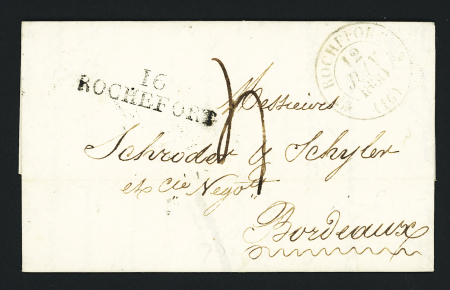 16
ROCHEFORT
ROCHEFORT
12
JUIN
1830
(16)
4
Messieurs
Schroder & Schyler
et Cie Negots
Bordeaux